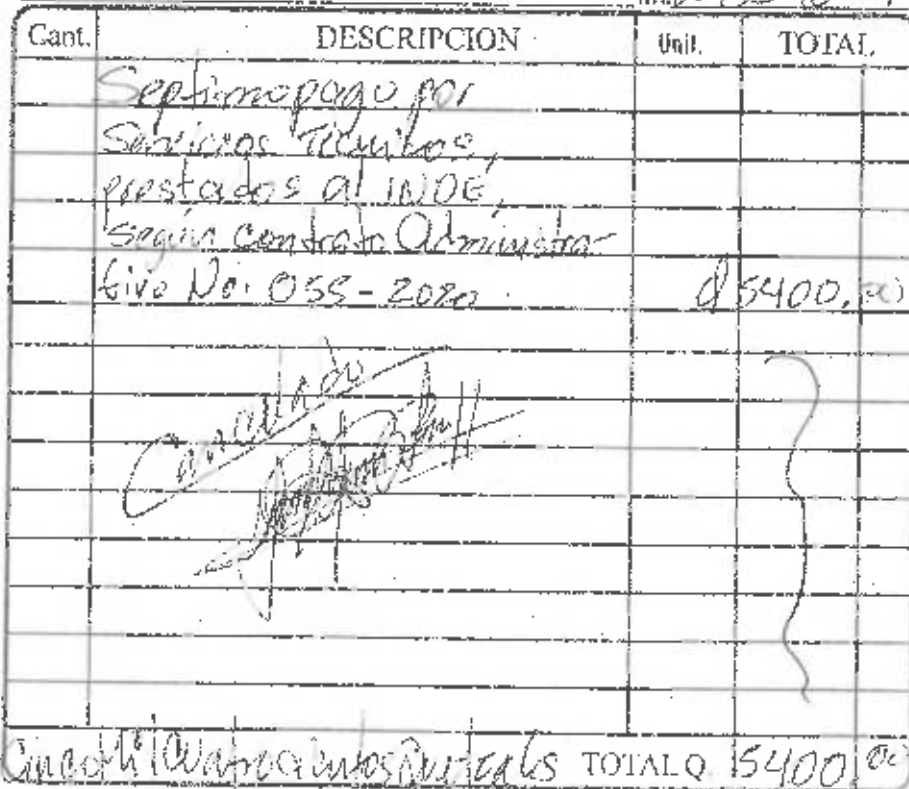 Cant. DESCRIPCION Unit. TOTAL
Septimo pago por
Servicios Técnicos,
prestados al INDE,
según contrato Administra-
tivo No. 055-2020 Q 5400.00
Cancelado
Cinco mil Cuatrocientos Quetzales TOTAL Q 5400 00